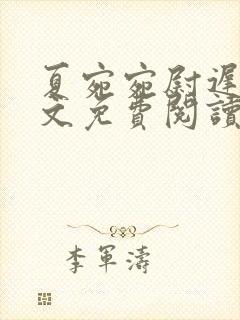 夏宛宛尉遲
文免費閱讀
李軍濤